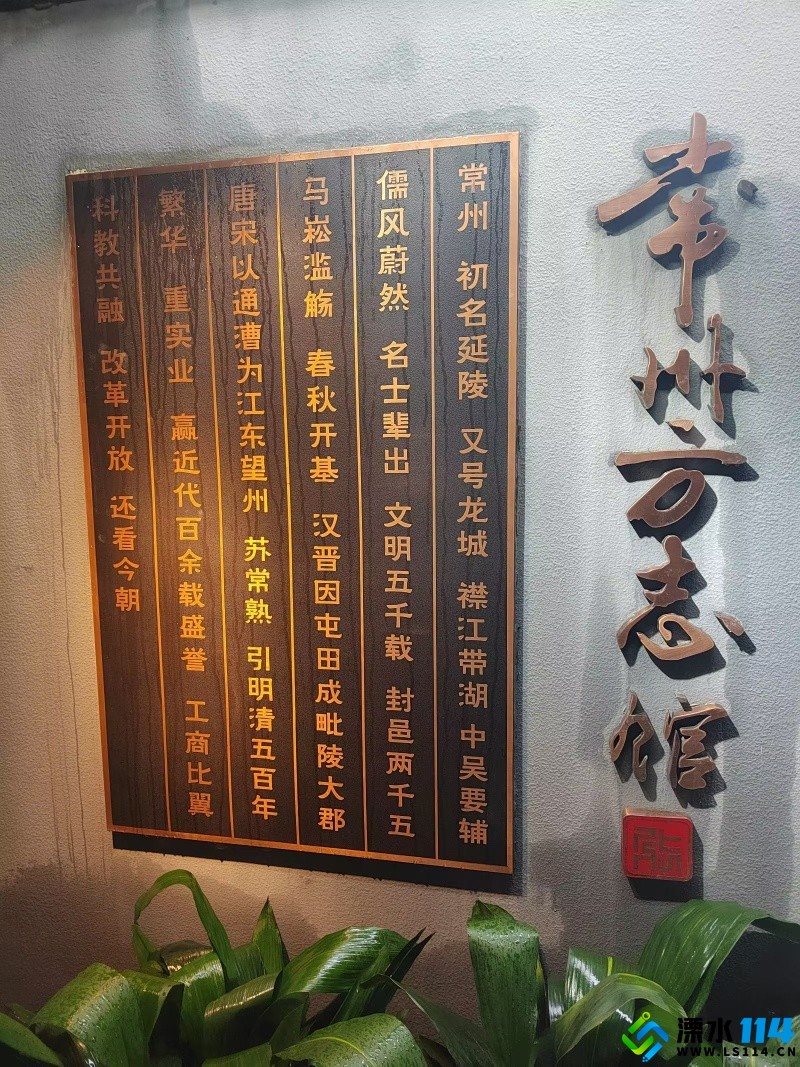 常州方志馆
常州 初名延陵 又号龙城 襟江带湖 中吴要辅
儒风蔚然 名士辈出 文明五千载 封邑两千五
马崧滥觞 春秋开基 汉晋因屯田成毗陵大郡
唐宋以通漕为江东望州 苏常熟 引明清五百年
繁华 重实业 赢近代百余载盛誉 工商比翼
科教共融 改革开放 还看今朝
溧水114
WWW.LS114.CN